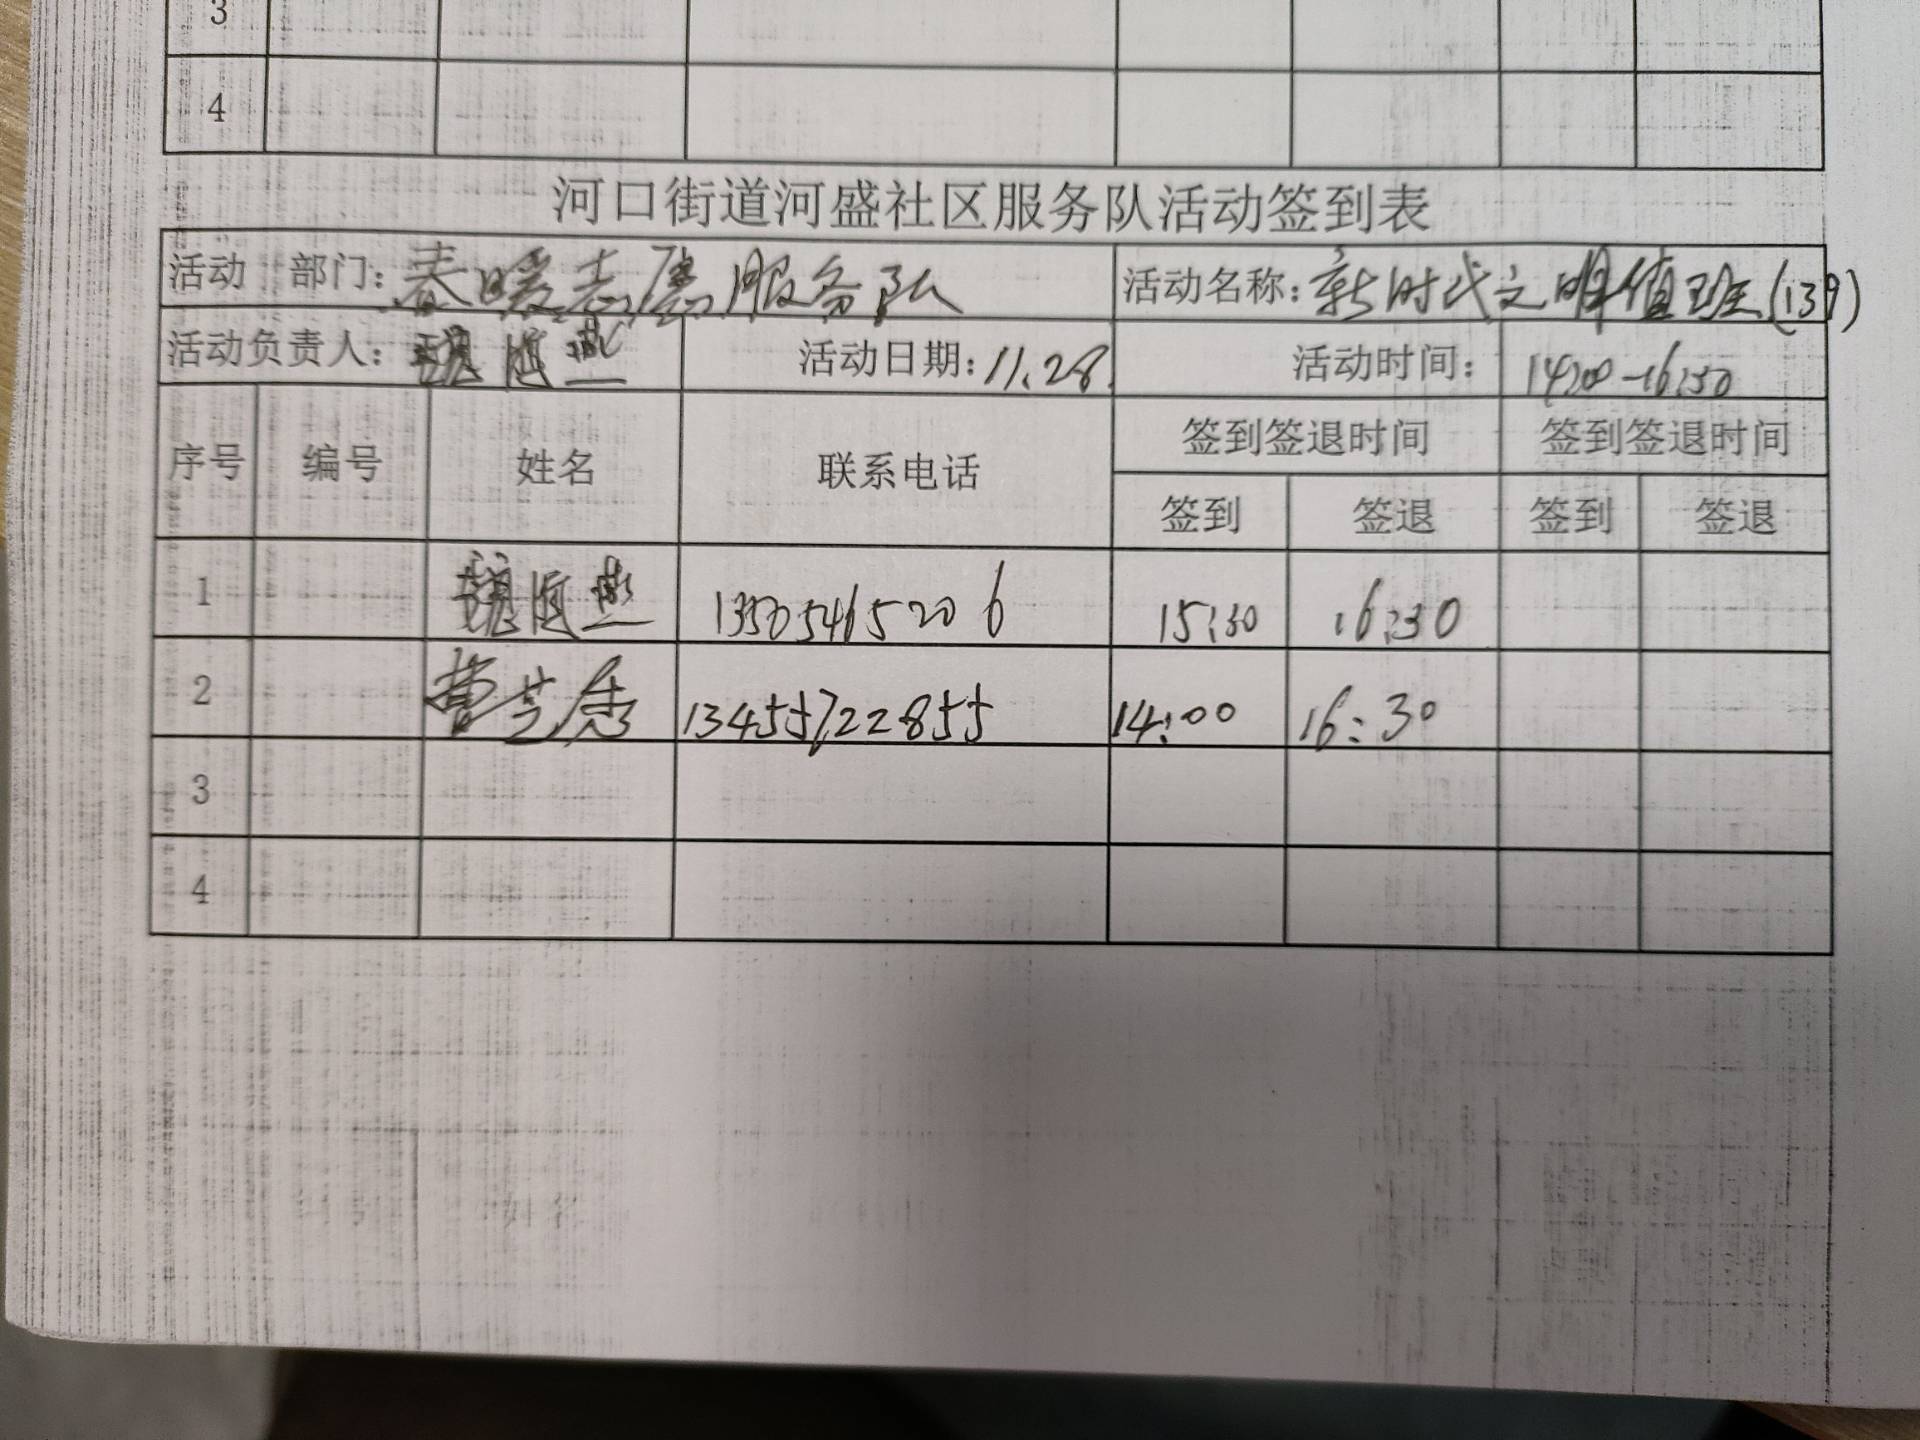 3
4
河口街道河盛社区服务队活动签到表
活动 部门：春暖志愿服务队 活动名称：新时代文明值班(139)
活动负责人：魏 燕 活动日期：11.28 活动时间：14:00-16:30
序号 编号 姓名 联系电话 签到签退时间 签到签退时间
签到 签退 签到 签退
1 魏 燕 13505465206 15:30 16:30
2 曹芝秀 13455722855 14:00 16:30
3
4